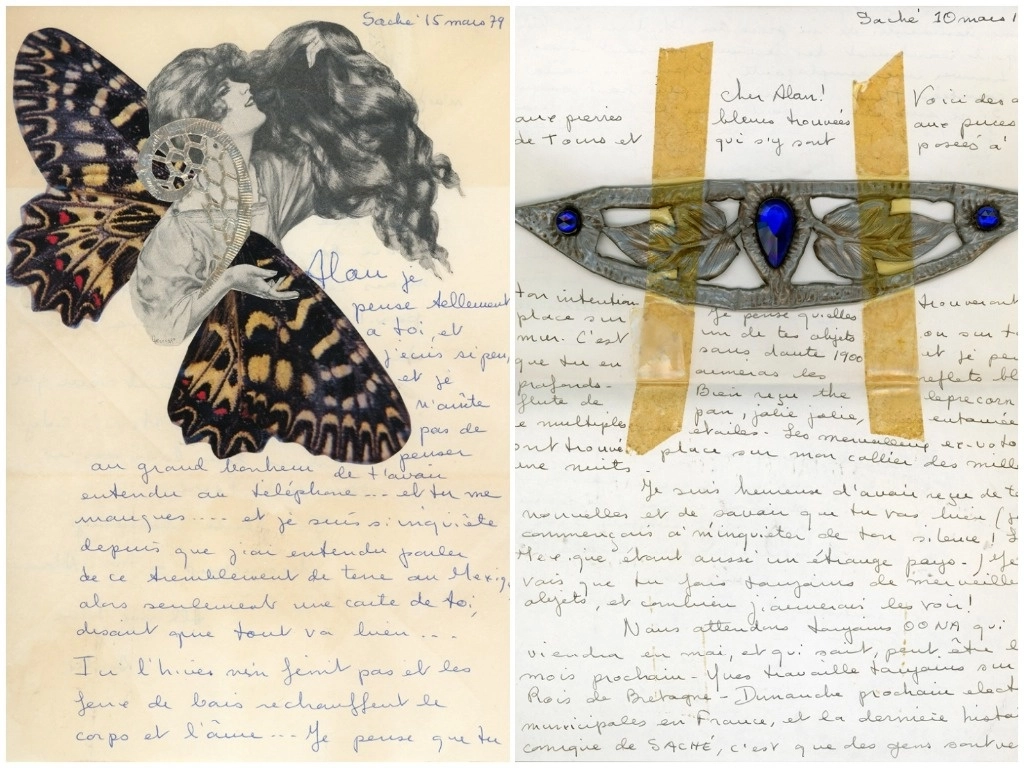 Saché 15 mars 79
Alan je
pense tellement
à toi, et
j'écris si peu,
et je
n'arrête
pas de
penser
au grand bonheur de t'avoir
entendu au téléphone... et tu me
manques.... et je suis si inquiète
depuis que j'ai entendu parler
de ce tremblement de terre au Mexiq
alors seulement une carte de toi,
disant que tout va bien....
Ici l'hiver n'en finit pas et les
feux de bois rechauffent le
corps et l'âme... Je pense que tu
Saché 10 mars 1
Cher Alan! Voici des
aux pierres bleues trouvées aux puces
de Tours et qui s'y sont posées à
ton intention. Je pense qu'elles trouveront
place sur un de tes objets ou sur t
mur. C'est sans doute 1900 et je pen
que tu en aimeras les reflets bl
profonds. Bien reçu the leprecorn
flute de pan, jolie jolie, entourée
e multiples étoiles. Les merveilleux ex-voto
ont trouvé place sur mon collier des mille
une nuits.
Je suis heureuse d'avoir reçu de te
nouvelles et de savoir que tu vas bien (je
commençais à m'inquiéter de ton silence! L
Mexique étant aussi un étrange pays.) Je
vois que tu fais toujours de merveille
objets, et combien j'aimerais les voir!
Nous attendons toujours OONA qui
viendra en mai, et qui sait, peut être l
mois prochain - Yves travaille toujours sur
Rois de Bretagne - Dimanche prochain elect
municipales en France, et la dernière histoi
comique de SACHÉ, c'est que des gens sont ve